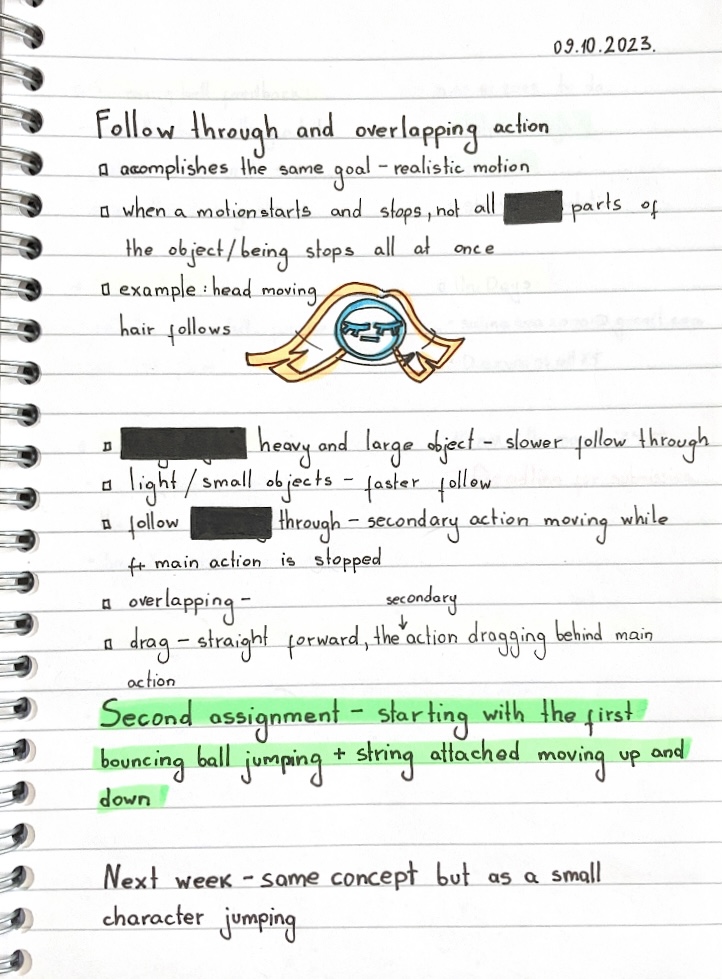 09.10.2023.
Follow through and overlapping action
▫ acomplishes the same goal – realistic motion
▫ when a motion starts and stops, not all parts of
the object/being stops all at once
▫ example: head moving
hair follows
▫ heavy and large object – slower follow through
▫ light / small objects – faster follow
▫ follow through – secondary action moving while
main action is stopped
▫ overlapping –
secondary
▫ drag – straight forward, the action dragging behind main
action
Second assignment – starting with the first
bouncing ball jumping + string attached moving up and
down
Next week – same concept but as a small
character jumping